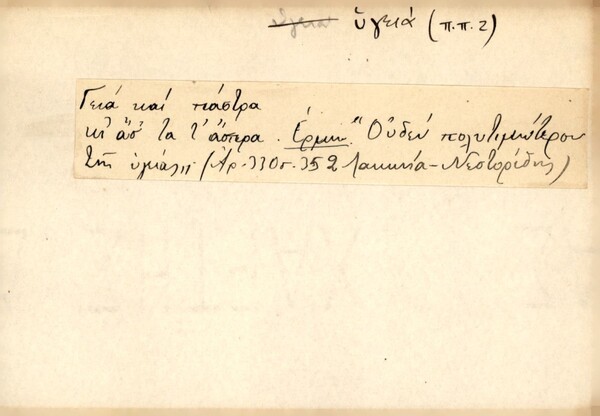 ὑγεια ὑγειά (π.π. 2)
Γειά καί πάστρα
κι ἄσ' τα τ' ἄσπρα. Ἑρμην. "Οὐδέν πολυτιμώτερον
τῆς ὑγείας„ (Ἀρ. 330 σ. 352 Λακωνία-Νεστορίδης)